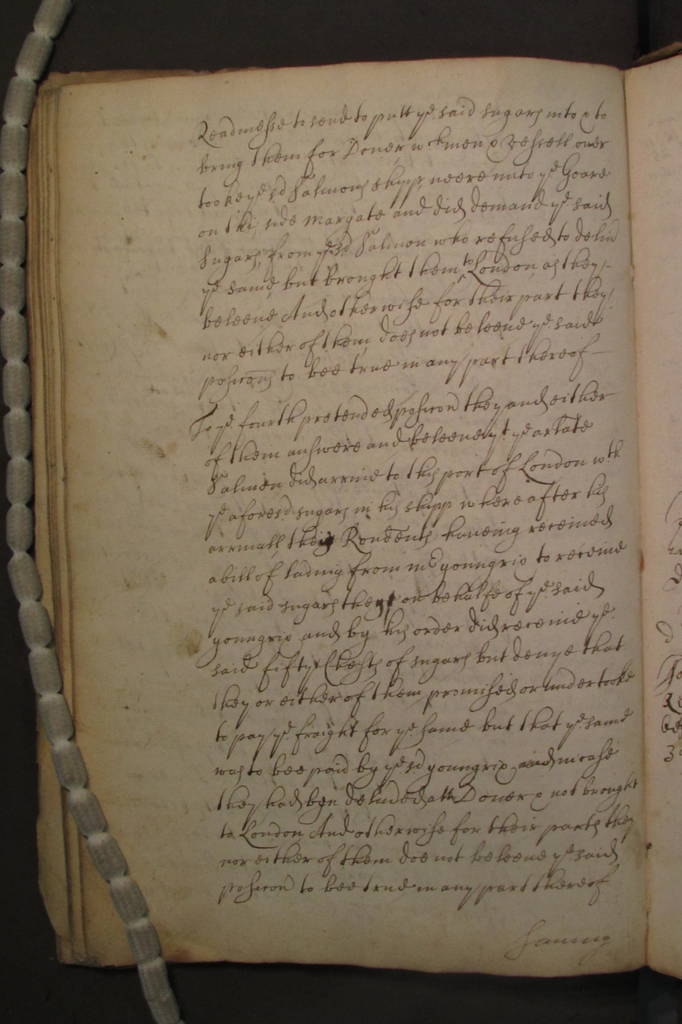 Readinesse to send to putt ye said sugars into & to
bring them for Dover w ch men & vessell over
tooke ye sd Salmons shipp neere unto ye Goare
on this side Margate and did demand ye said
sugars from ye sd Salmon who refused to delivd
ye same but brought them to London as they
beleeve And otherwise for their part they
nor either of them does not beleeve ye said
posicons to bee true in any part thereof
To ye fourth pretended posicon they and either
of them answere and beleeve yt ye arlate
Salmon did arrive to this port of London wth
ye aforesd sugars in his shipp where after his
arrivall theis Rondents haveing received
a bill of lading from mr youngrio to receive
ye said sugars they on behalfe of ye said
youngrio and by his order did receive ye
said fifty Chests of sugars but denye that
they or either of them promised or undertooke
to pay ye fraight for ye same but that ye same
was to bee paid by ye sd youngrio and in case
they had ben delivded att Dover & not brought
to London And otherwise for their parts they
nor either of them doe not beleeve ye said
posicon to bee true in any part thereof